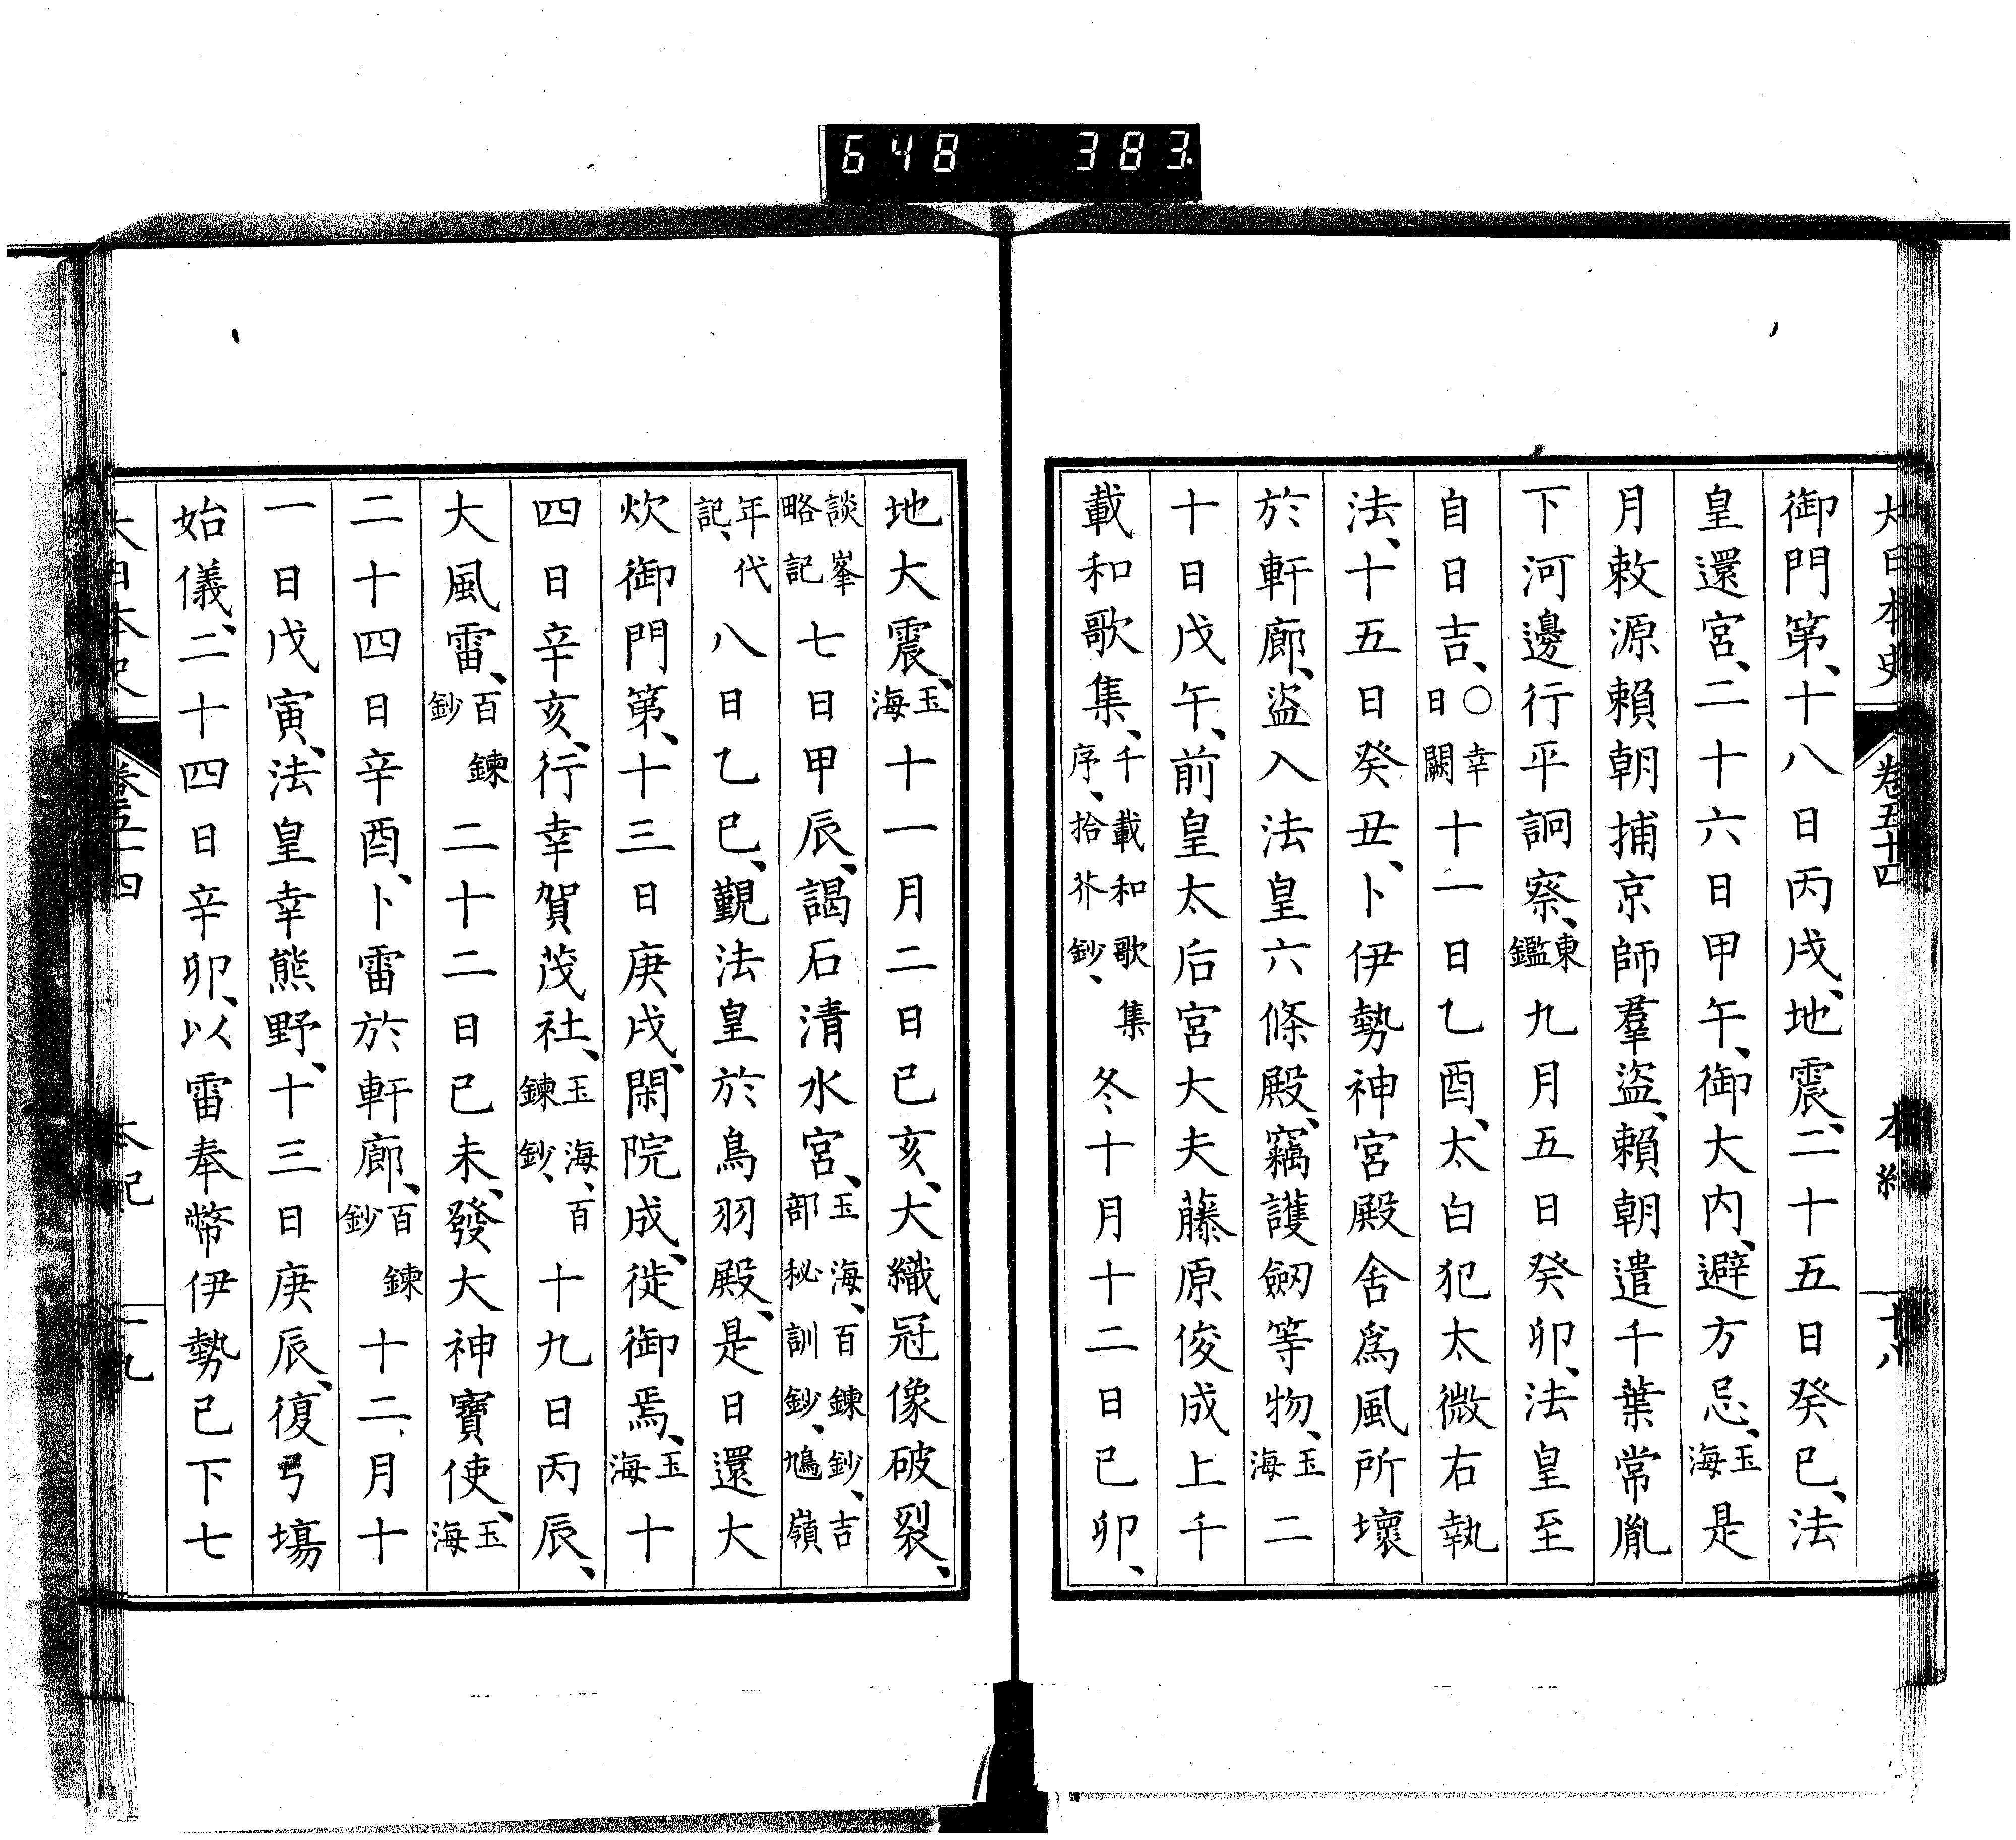 648 383.
大日本史 卷五十四 本紀 十八
御門第、十八日丙戌、地震、二十五日癸巳、法
皇還宮、二十六日甲午、御大内、避方忌、玉海是
月敕源賴朝捕京師羣盜、賴朝遣千葉常胤
下河邊行平詗察、東鑑九月五日癸卯、法皇至
自日吉、〇幸日闕十一日乙酉、太白犯太微右執
法、十五日癸丑、卜伊勢神宮殿舍爲風所壞
於軒廊、盜入法皇六條殿、竊護劒等物、玉海二
十日戊午、前皇太后宮大夫藤原俊成上千
載和歌集、千載和歌集序、拾芥鈔、冬十月十二日己卯、
地大震、玉海十一月二日己亥、大織冠像破裂、
談峯略記七日甲辰、謁石清水宮、玉海、百鍊鈔、吉部秘訓鈔、鳩嶺
年代記、八日乙巳、覲法皇於鳥羽殿、是日還大
炊御門第、十三日庚戌、閑院成、徙御焉、玉海十
四日辛亥、行幸賀茂社、玉海、百鍊鈔、十九日丙辰、
大風雷、百鍊鈔二十二日己未、發大神寶使、玉海
二十四日辛酉、卜雷於軒廊、百鍊鈔十二月十
一日戊寅、法皇幸熊野、十三日庚辰、復弓場
始儀、二十四日辛卯、以雷奉幣伊勢已下七
大日本史 卷五十四 本紀 十九